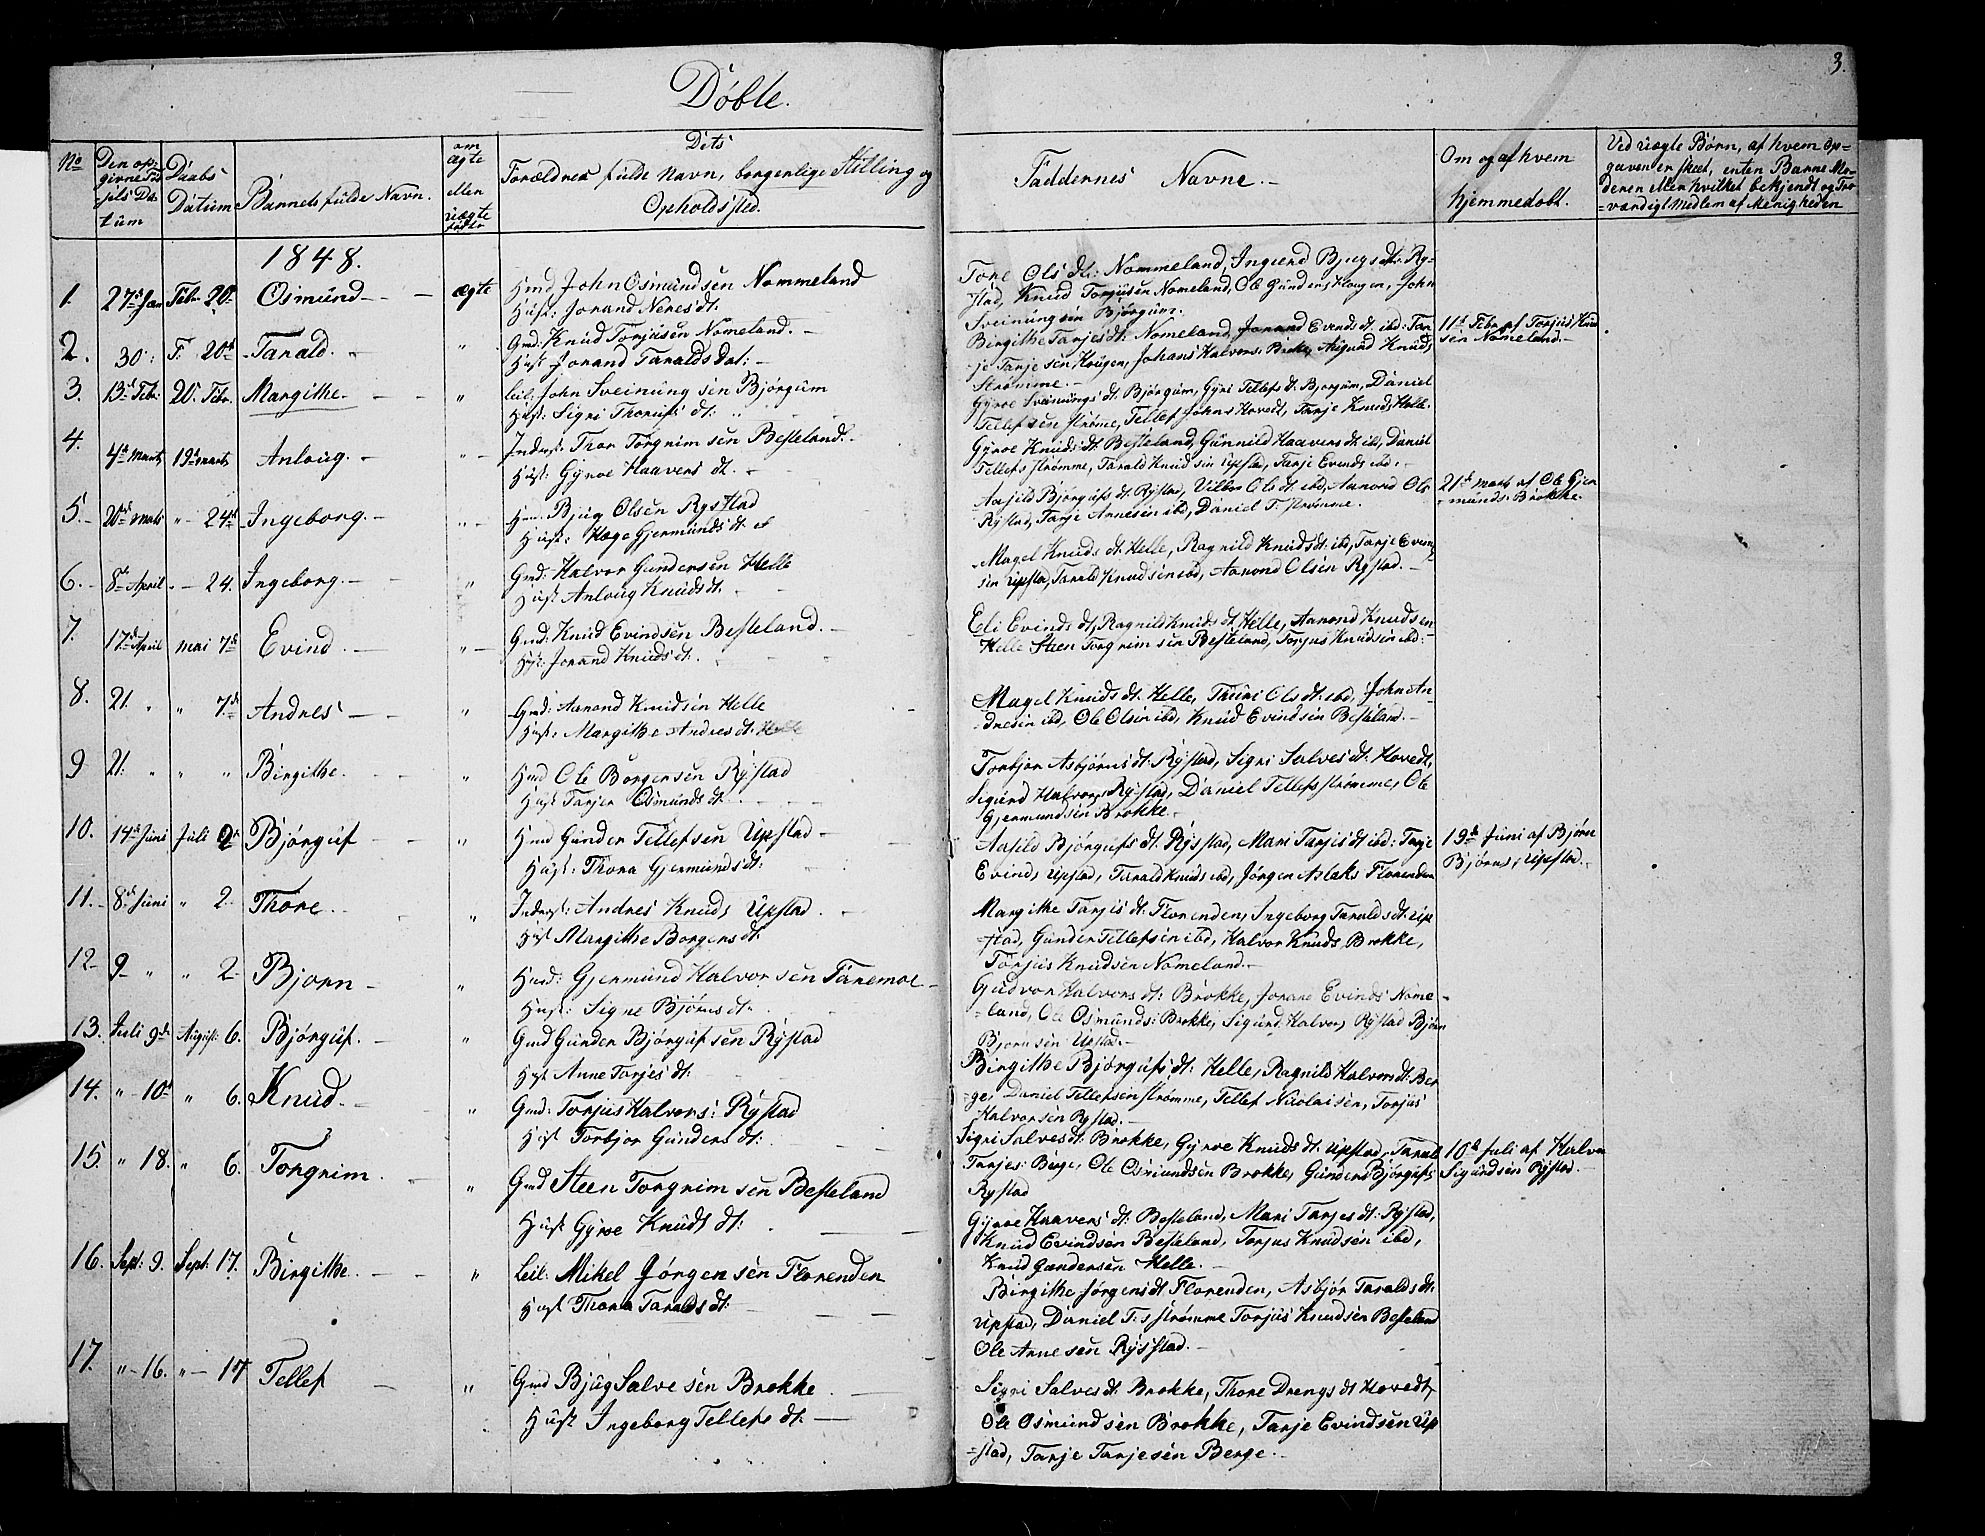 3.
Døbte.
No
Den op-
givne Fød
sels Da
tum
Daabs
Datum
Barnets fulde Navn.
om
ægte
eller
uægte
født
Dets
Forældres fulde Navn, borgerlige Stilling og
Opholdssted.
Faddernes Navne.
Om og af hvem
hjemmedøbt.
Ved uægte Børn, af hvem Op-
gaven er skeet, enten Barne Mo-
deren eller hvilket bekjendt og Tro
-værdigt Medlem af Menigheden
1848.
1. 27de Jan Febr 20de Osmund ægte Hmd John Osmundsen Nommeland
Hust: Jorand Neresdt:
Tore Olsdt: Nommeland, Ingierd Bjugsdt: Ry-
stad, Knud Torjusen Nomeland, Ole Gunders Hougen, John
Sveinungsen Bjørgum.
2. 30 F. 20de Tarald. " Gmd. Knud Torjusen Nomeland.
Hust Jorand Taraldsdat:
Birgithe Tarjesdt: Nomeland, Jorand Evindsdt ibd: Tar
je Tarjesen Hougen, Johans Halvors. Broke, Sigurd Knuds
Strømme.
11te Febr af Torjus Knud
sen Nomeland.
3. 13de Febr: 20de Febr. Margithe " Leil: John Sveinungsen Bjørgum
Hust: Sigri Thorufsdt:
Gyroe Sveinungsdt. Bjørgum, Gyri Tellefsdt. Bjorgum, Daniel
Tellefsen strøme, Tellef Johns Hovedt, Tarje Knuds Helle.
4. 4de Marts 19de Marts Anloug. " Inderst: Thor Torgrimsen Besteland.
Hust: Gyroe Haaversdt.
Gyroe Knudsdt. Besteland, Gunnild Haaversdt ibd, Daniel
Tellefs strømme, Tarald Knudsen Upstad, Tarje Evinds ibd.
5. 20de Marts " 24de Ingeborg. " Hmd: Bjug Olsen Rystad
Hust: Hæge Gjermundsdt.
Aasild Bjørgufsdt. Rystad, Olsdt ibd, Aanond Ols
Rystad, Tarje Arnesen ibd, Daniel T. strømme.
21de Marts af Ole Gjer
munds: Brokke.
6. 8de April " 24. Ingeborg. " Gmd: Halvor Gundersen Helle
Hust Anloug Knudsdt.
Magel Knudsdt. Helle, Ragnild Knudsdt: ibd, Tarje Evind
sen Upstad, Tarald Knudsen ibd, Aanond Olsen Rystad.
7. 17de April Mai 7de Evind. " Gmd: Knud Evindsen Besteland.
Hust: Jorand Knudsdt.
Eli Evindsdt, Ragnild Knudsdt. Helle, Aanond Knudsen
Helle Steen Torgrimsen Besteland, Torjus Knudsen ibd.
8. 21. " " 7de Andres " Gmd: Aanond Knudsen Helle
Hust: Margithe Andresdt. Helle
Magel Knudsdt. Helle, Thuri Olsdt. ibd, John An-
dresen ibd, Ole Olsen ibd, Knud Evindsen Besteland.
9 21. " " " Birgithe. " Hmd Ole Borgersen Rystad
Hust Tarjer Osmundsdt.
Torbjor Asbjørnsdt. Rystad, Sigri Salvesdt. Hovedt,
Sigurd Halvors Rystad, Daniel Tellefs strømme, Ole
Gjermundsen Brokke.
10. 14de Juni Juli 2de Bjørguf " Hmd Gunder Tellefsen Upstad
Hust: Thora Gjermundsdt:
Aasild Bjørgufsdt. Rystad, Mari Tarjesdt ibd: Tarje
Evinds Upstad, Tarald Knuds ibd, Jørgen Aslaks Florenden
19de Juni af Bjørn
Bjørns: Upstad.
11. 8de Juni " 2. Thore. " Inderst: Andres Knuds Upstad.
Hust Margithe Borgersdt.
Margithe Tarjesdt. Florenden, Ingeborg Taraldsdt. Up
stad, Gunder Tellefsen ibd, Halvor Knuds Brokke,
Torjus Knudsen Nomeland.
12 9 " " 2 Bjorn " Hmd: Gjermund Halvorsen Tanemoe
Hust: Signe Bjørnsdt.
Gudvor Halvorsdt: Brokke, Jorand Evinds Nome-
land, Ole Osmunds: Brokke, Sigurd Halvors Rystad Bjørn
Bjornsen Upstad.
13. Juli 9de August: 6. Bjørguf. " Gmd Gunder Bjørgufsen Rystad
Hust Anne Torjesdt:
Birgithe Bjørgufsdt: Helle, Ragnild Halvorsdt: Ber
ge, Daniel Tellefsen strømme, Tellef Nicolaisen, Torjus
Halvorsen Rystad.
14. " 10de " 6. Knud. " Gmd: Torjus Halvors: Rystad
Hust Torbjor Gundersdt:
Sigri Salvesdt. Brokke, Gyroe Knudsdt. Upstad, Tarald
Tarjes: Berge, Ole Osmundsen Brokke, Gunder Bjørgufs
Rystad
10de Juli af Halvor
Sigurdsen Rystad.
15. " 18. " 6. Torgrim. " Gmd Steen Torgrimsen Besteland
Hust Gyroe Knudsdt:
Gyroe Haaversdt: Besteland, Mari Tarjesdt: Rystad,
Knud Evindsen Besteland, Torjus Knudsen ibd,
Knud Gundersen Helle.
16. Sept: 9. Sept: 17. Birgithe. " Leil: Mikel Jørgensen Florenden
Hust Thora Taraldsdt:
Birgithe Jørgensdt Florenden, Asbjør Taraldsdt:
Upstad, Daniel T:s strømme Torjus Knudsen Besteland
Ole Arnesen Rystad.
17. " 16. " 17 Tellef " Gmd Bjug Salvesen Brokke
Hust Ingeborg Tellefsdt.
Sigri Salvesdt. Brokke, Thore Drengsdt Hovedt,
Ole Osmundsen Brokke, Tarje Evindsen Up
-stad, Tarje Tarjesen Berge.